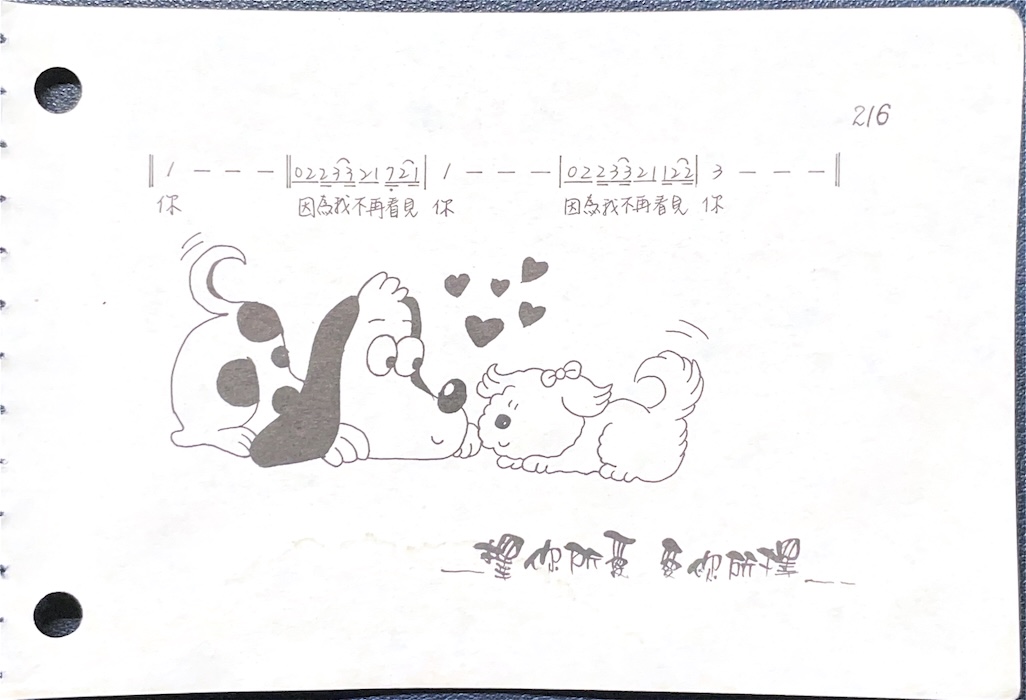 216
‖ 1 - - - ‖ 0 2 2 2 3 3 2 1 7 2 1 | 1 - - - | 0 2 2 3 3 2 1 1 2 2 | 3 - - - ‖
你 因為我不再看見 你 因為我不再看見 你
擇你所愛 愛你所擇